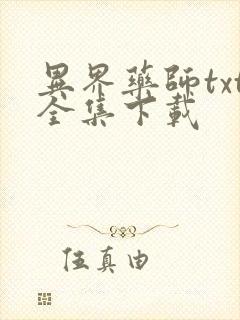 異界藥師txt
全集下載
伍真由